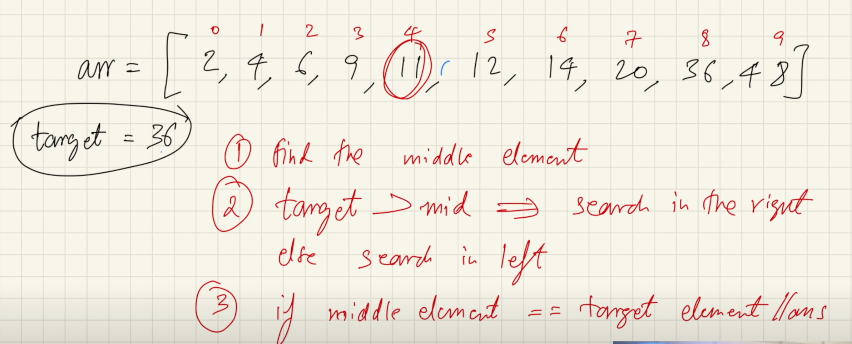 0 1 2 3 4 5 6 7 8 9
arr = [ 2, 4, 6, 9, 11, 12, 14, 20, 36, 48 ]
target = 36
① find the middle element
② target > mid ⇒ search in the right
else search in left
③ if middle element == target element //ans